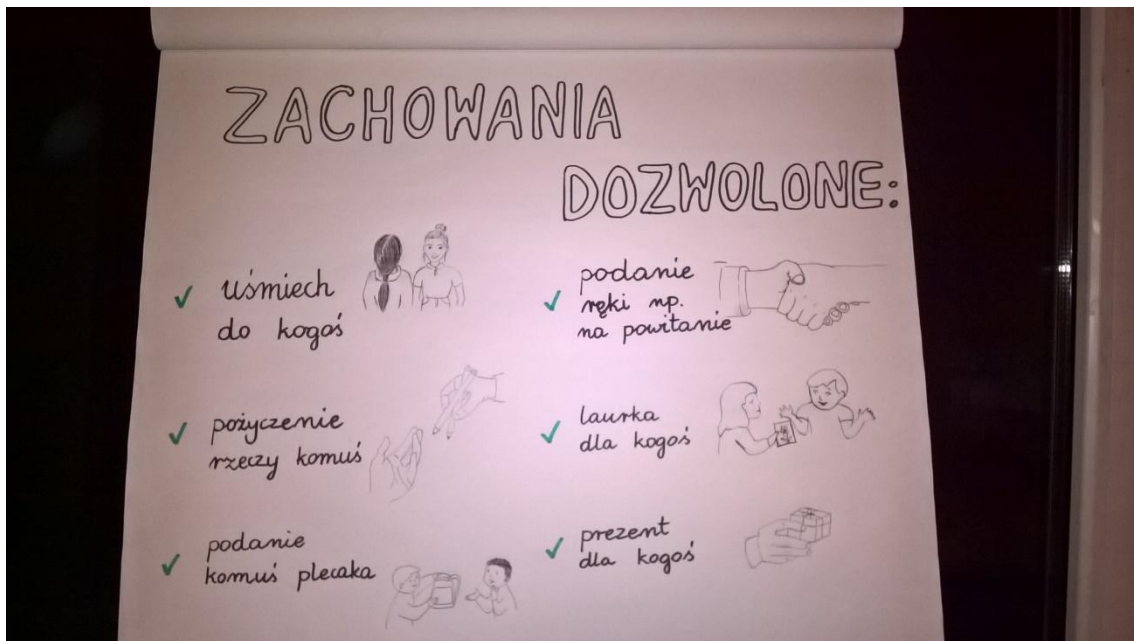 ZACHOWANIA
DOZWOLONE:
✓ uśmiech
do kogoś
✓ pożyczenie
rzeczy komuś
✓ podanie
komuś plecaka
✓ podanie
ręki np.
na powitanie
✓ laurka
dla kogoś
✓ prezent
dla kogoś